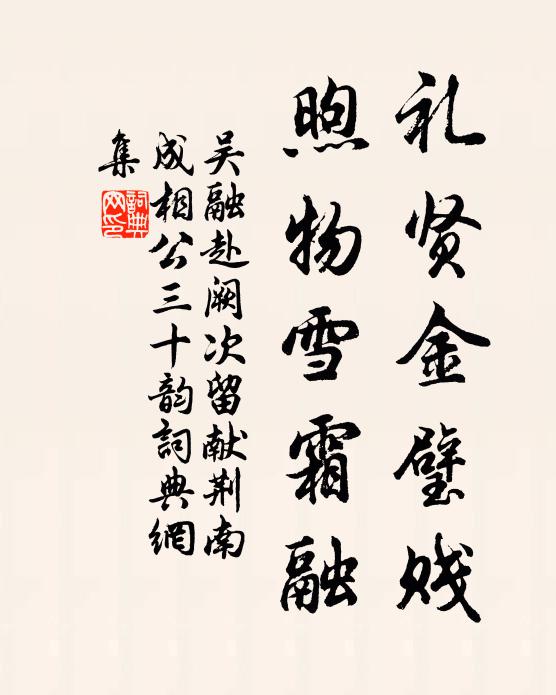 礼贤金璧贱
煦物雪霜融
吴融赴阙次留献荆南
成相公三十韵詞典網
集
詞典
网印